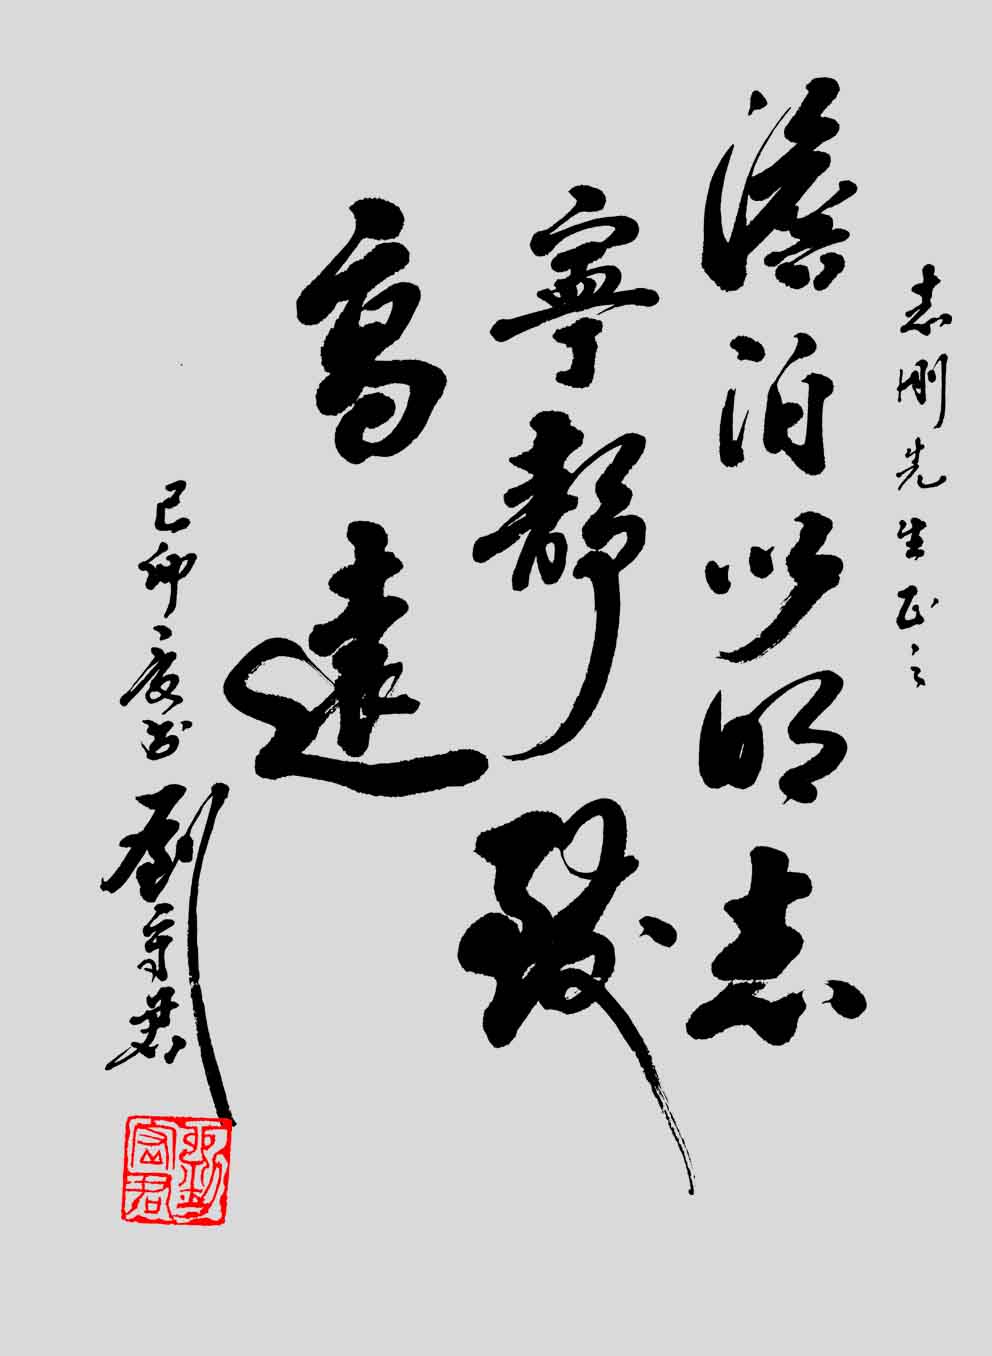 志刚先生正之
澹泊以明志
寧靜致
高遠
己卯夏书
劉 君
劉 君